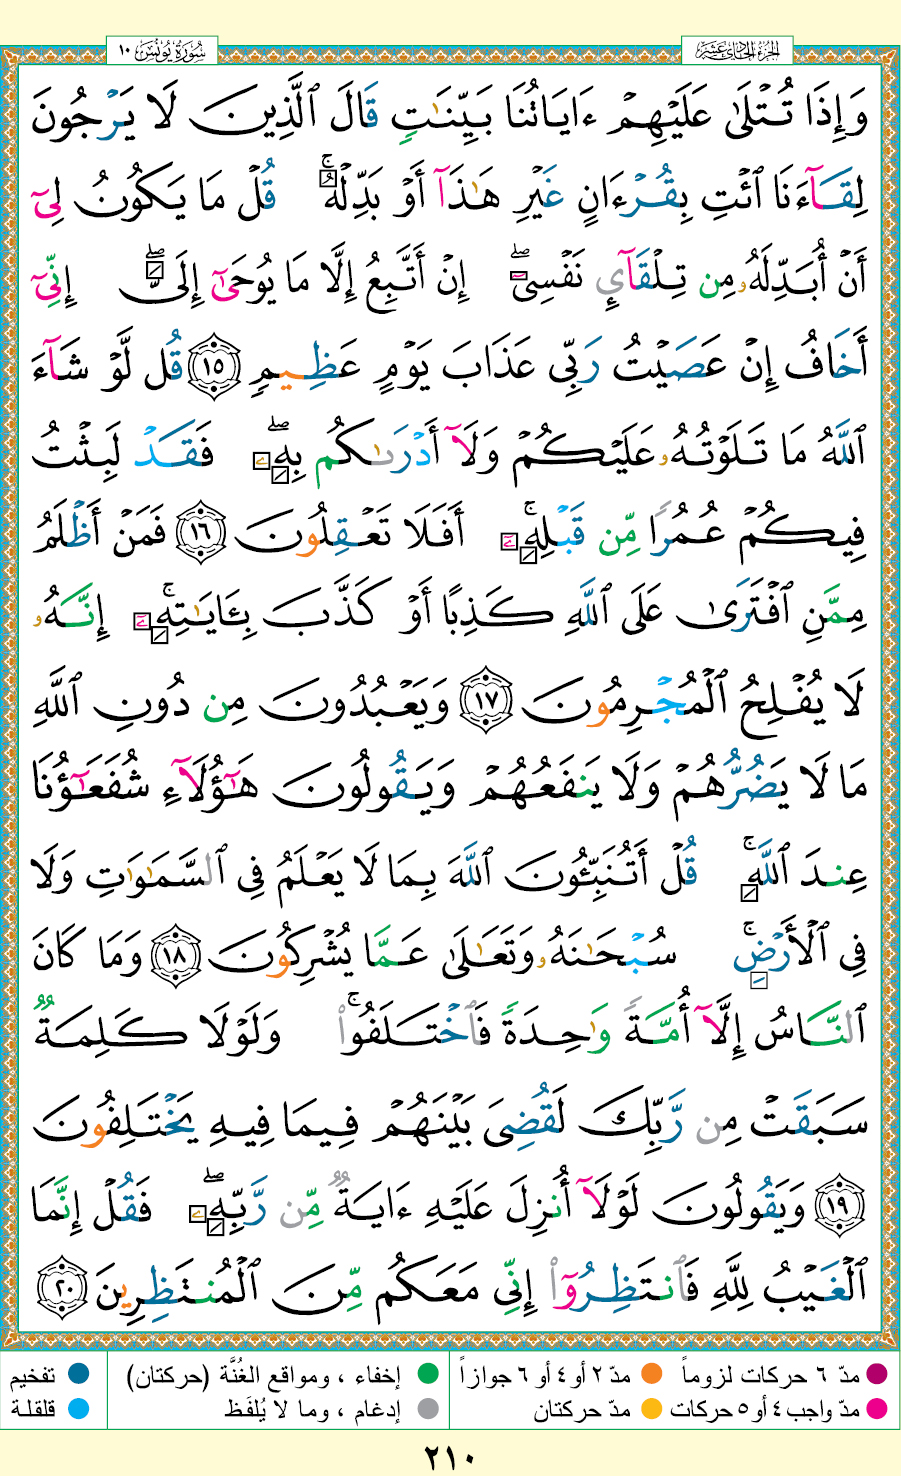 سُورَةُ يُونُسَ ١٠
الجُزءُ الحَادِي عَشَرَ
وَإِذَا تُتْلَىٰ عَلَيْهِمْ ءَايَاتُنَا بَيِّنَٰتٍ قَالَ ٱلَّذِينَ لَا يَرْجُونَ
لِقَآءَنَا ٱئْتِ بِقُرْءَانٍ غَيْرِ هَٰذَآ أَوْ بَدِّلْهُ ۚ قُلْ مَا يَكُونُ لِىٓ
أَنْ أُبَدِّلَهُۥ مِن تِلْقَآئِ نَفْسِىٓ ۖ إِنْ أَتَّبِعُ إِلَّا مَا يُوحَىٰٓ إِلَىَّ ۖ إِنِّىٓ
أَخَافُ إِنْ عَصَيْتُ رَبِّى عَذَابَ يَوْمٍ عَظِيمٍ ١٥ قُل لَّوْ شَآءَ
ٱللَّهُ مَا تَلَوْتُهُۥ عَلَيْكُمْ وَلَآ أَدْرَىٰكُم بِهِۦ ۖ فَقَدْ لَبِثْتُ
فِيكُمْ عُمُرًا مِّن قَبْلِهِۦٓ ۚ أَفَلَا تَعْقِلُونَ ١٦ فَمَنْ أَظْلَمُ
مِمَّنِ ٱفْتَرَىٰ عَلَى ٱللَّهِ كَذِبًا أَوْ كَذَّبَ بِـَٔايَٰتِهِۦٓ ۚ إِنَّهُۥ
لَا يُفْلِحُ ٱلْمُجْرِمُونَ ١٧ وَيَعْبُدُونَ مِن دُونِ ٱللَّهِ
مَا لَا يَضُرُّهُمْ وَلَا يَنفَعُهُمْ وَيَقُولُونَ هَٰٓؤُلَآءِ شُفَعَٰٓؤُنَا
عِندَ ٱللَّهِ ۚ قُلْ أَتُنَبِّـُٔونَ ٱللَّهَ بِمَا لَا يَعْلَمُ فِى ٱلسَّمَٰوَٰتِ وَلَا
فِى ٱلْأَرْضِ ۚ سُبْحَٰنَهُۥ وَتَعَٰلَىٰ عَمَّا يُشْرِكُونَ ١٨ وَمَا كَانَ
ٱلنَّاسُ إِلَّآ أُمَّةً وَٰحِدَةً فَٱخْتَلَفُوا۟ ۚ وَلَوْلَا كَلِمَةٌ
سَبَقَتْ مِن رَّبِّكَ لَقُضِىَ بَيْنَهُمْ فِيمَا فِيهِ يَخْتَلِفُونَ
١٩ وَيَقُولُونَ لَوْلَآ أُنزِلَ عَلَيْهِ ءَايَةٌ مِّن رَّبِّهِۦ ۖ فَقُلْ إِنَّمَا
ٱلْغَيْبُ لِلَّهِ فَٱنتَظِرُوٓا۟ إِنِّى مَعَكُم مِّنَ ٱلْمُنتَظِرِينَ ٢٠
مدّ ٦ حركات لزوماً
مدّ ٢ أو ٤ أو ٦ جوازاً
إخفاء ، ومواقع الغُنَّة (حركتان)
تفخيم
مدّ واجب ٤ أو ٥ حركات
مدّ حركتان
إدغام ، وما لا يُلفَظ
قلقلة
٢١٠